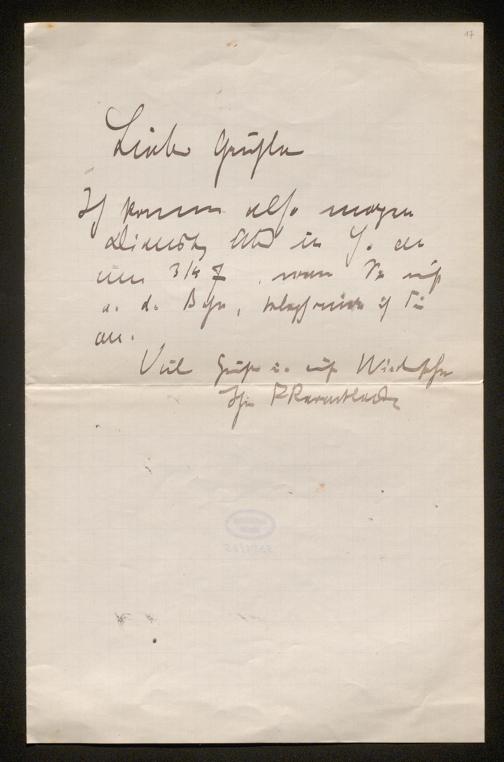 17
Liebe
Ich komme also morgen
Dienstag Abd in J. an
um 3/4 7, wenn Sie nicht
a. d. Bhf, telephoniere ich Sie
an.
Viele Grüße u. auf Wiedersehn
Ihr